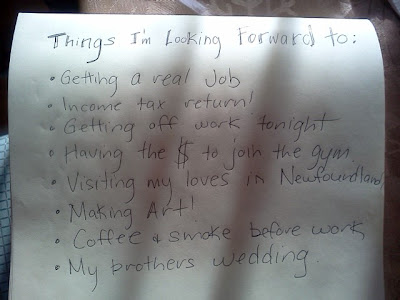 Things I'm Looking Forward to:
• Getting a real Job
• Income tax return!
• Getting off work tonight
• Having the $ to join the gym
• Visiting my loves in Newfoundland
• Making Art!
• Coffee & smoke before work
• My brothers wedding.